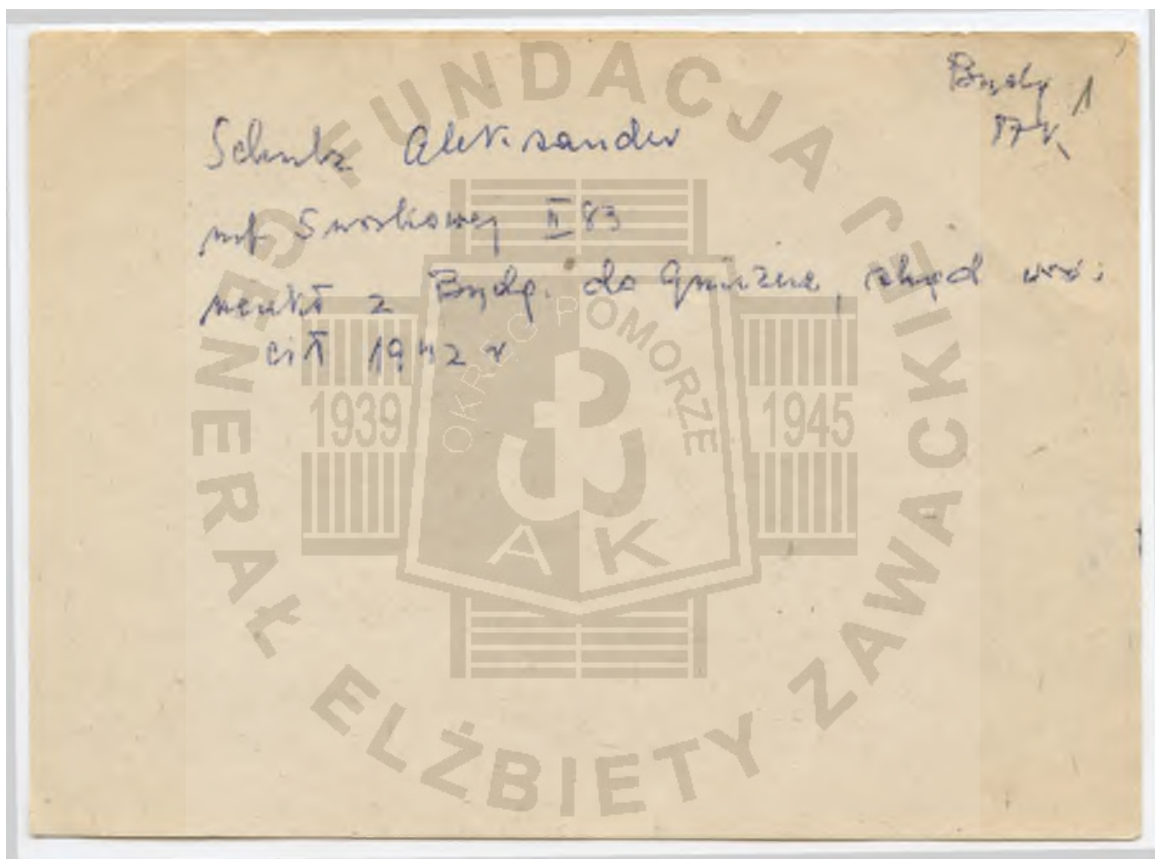 Bydg 1
Schulz Aleksander
inf. Sworkowej II 83
z Bydg. do Gniezna, skąd wró-
cił 1942 r
FUNDACJA GENERAŁ ELŻBIETY ZAWACKIEJ
OKRĘG POMORZE
1939
1945
AK